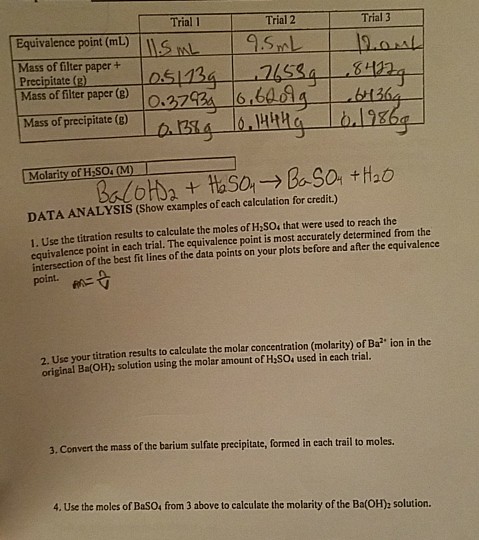 Trial 1 Trial 2 Trial 3
Equivalence point (mL) 11.5 mL 9.5mL 12.0mL
Mass of filter paper +
Precipitate (g) 0.5173g .7653g .8422g
Mass of filter paper (g) 0.3793g 0.6209g .6436g
Mass of precipitate (g) 0.138g 0.1444g 0.1986g
Molarity of H₂SO₄ (M)
Ba(OH)₂ + H₂SO₄ → BaSO₄ + H₂O
DATA ANALYSIS (Show examples of each calculation for credit.)
1. Use the titration results to calculate the moles of H₂SO₄ that were used to reach the
equivalence point in each trial. The equivalence point is most accurately determined from the
intersection of the best fit lines of the data points on your plots before and after the equivalence
point. m= n/V
2. Use your titration results to calculate the molar concentration (molarity) of Ba²⁺ ion in the
original Ba(OH)₂ solution using the molar amount of H₂SO₄ used in each trial.
3. Convert the mass of the barium sulfate precipitate, formed in each trail to moles.
4. Use the moles of BaSO₄ from 3 above to calculate the molarity of the Ba(OH)₂ solution.